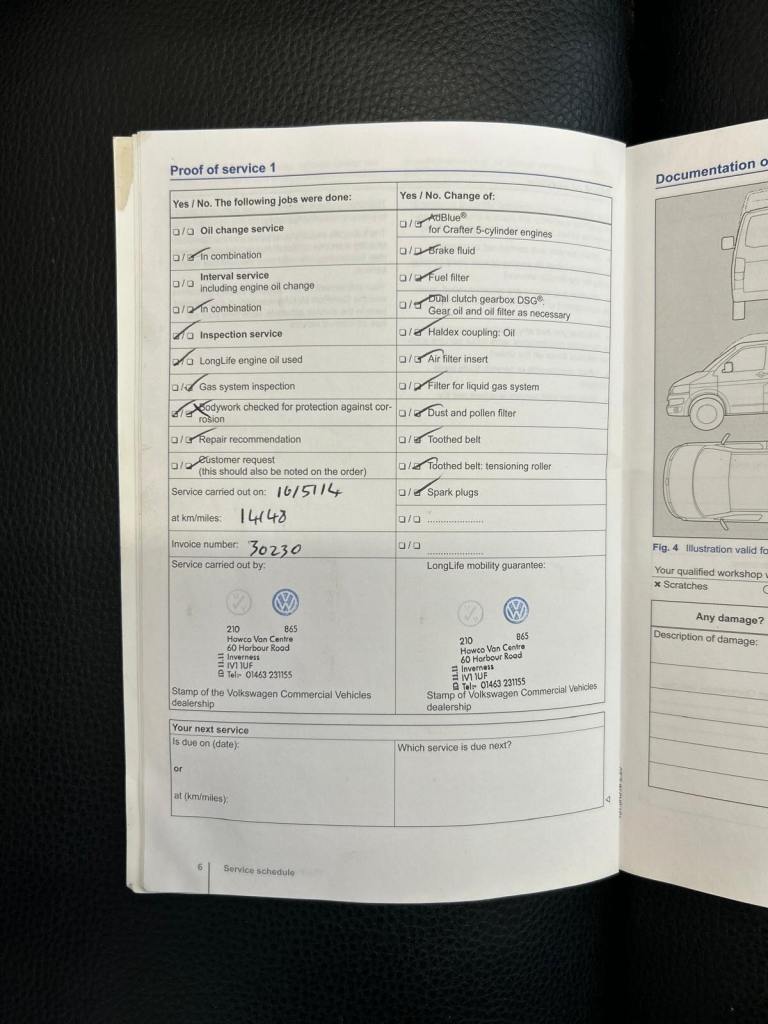 Proof of service 1
Yes / No. The following jobs were done:
Oil change service
In combination
Interval service
including engine oil change
In combination
Inspection service
LongLife engine oil used
Gas system inspection
Bodywork checked for protection against cor-
rosion
Repair recommendation
Customer request
(this should also be noted on the order)
Service carried out on: 16/5/14
at km/miles: 14148
Invoice number: 30230
Service carried out by:
210 865
Howco Van Centre
60 Harbour Road
Inverness
IV1 1UF
Tel:- 01463 231155
Stamp of the Volkswagen Commercial Vehicles
dealership
Yes / No. Change of:
AdBlue®
for Crafter 5-cylinder engines
Brake fluid
Fuel filter
Dual clutch gearbox DSG®:
Gear oil and oil filter as necessary
Haldex coupling: Oil
Air filter insert
Filter for liquid gas system
Dust and pollen filter
Toothed belt
Toothed belt: tensioning roller
Spark plugs
LongLife mobility guarantee:
210 865
Howco Van Centre
60 Harbour Road
Inverness
IV1 1UF
Tel:- 01463 231155
Stamp of Volkswagen Commercial Vehicles
dealership
Your next service
Is due on (date):
or
at (km/miles):
Which service is due next?
6 Service schedule
Documentation o
Fig. 4 Illustration valid fo
Your qualified workshop
× Scratches
Any damage?
Description of damage: